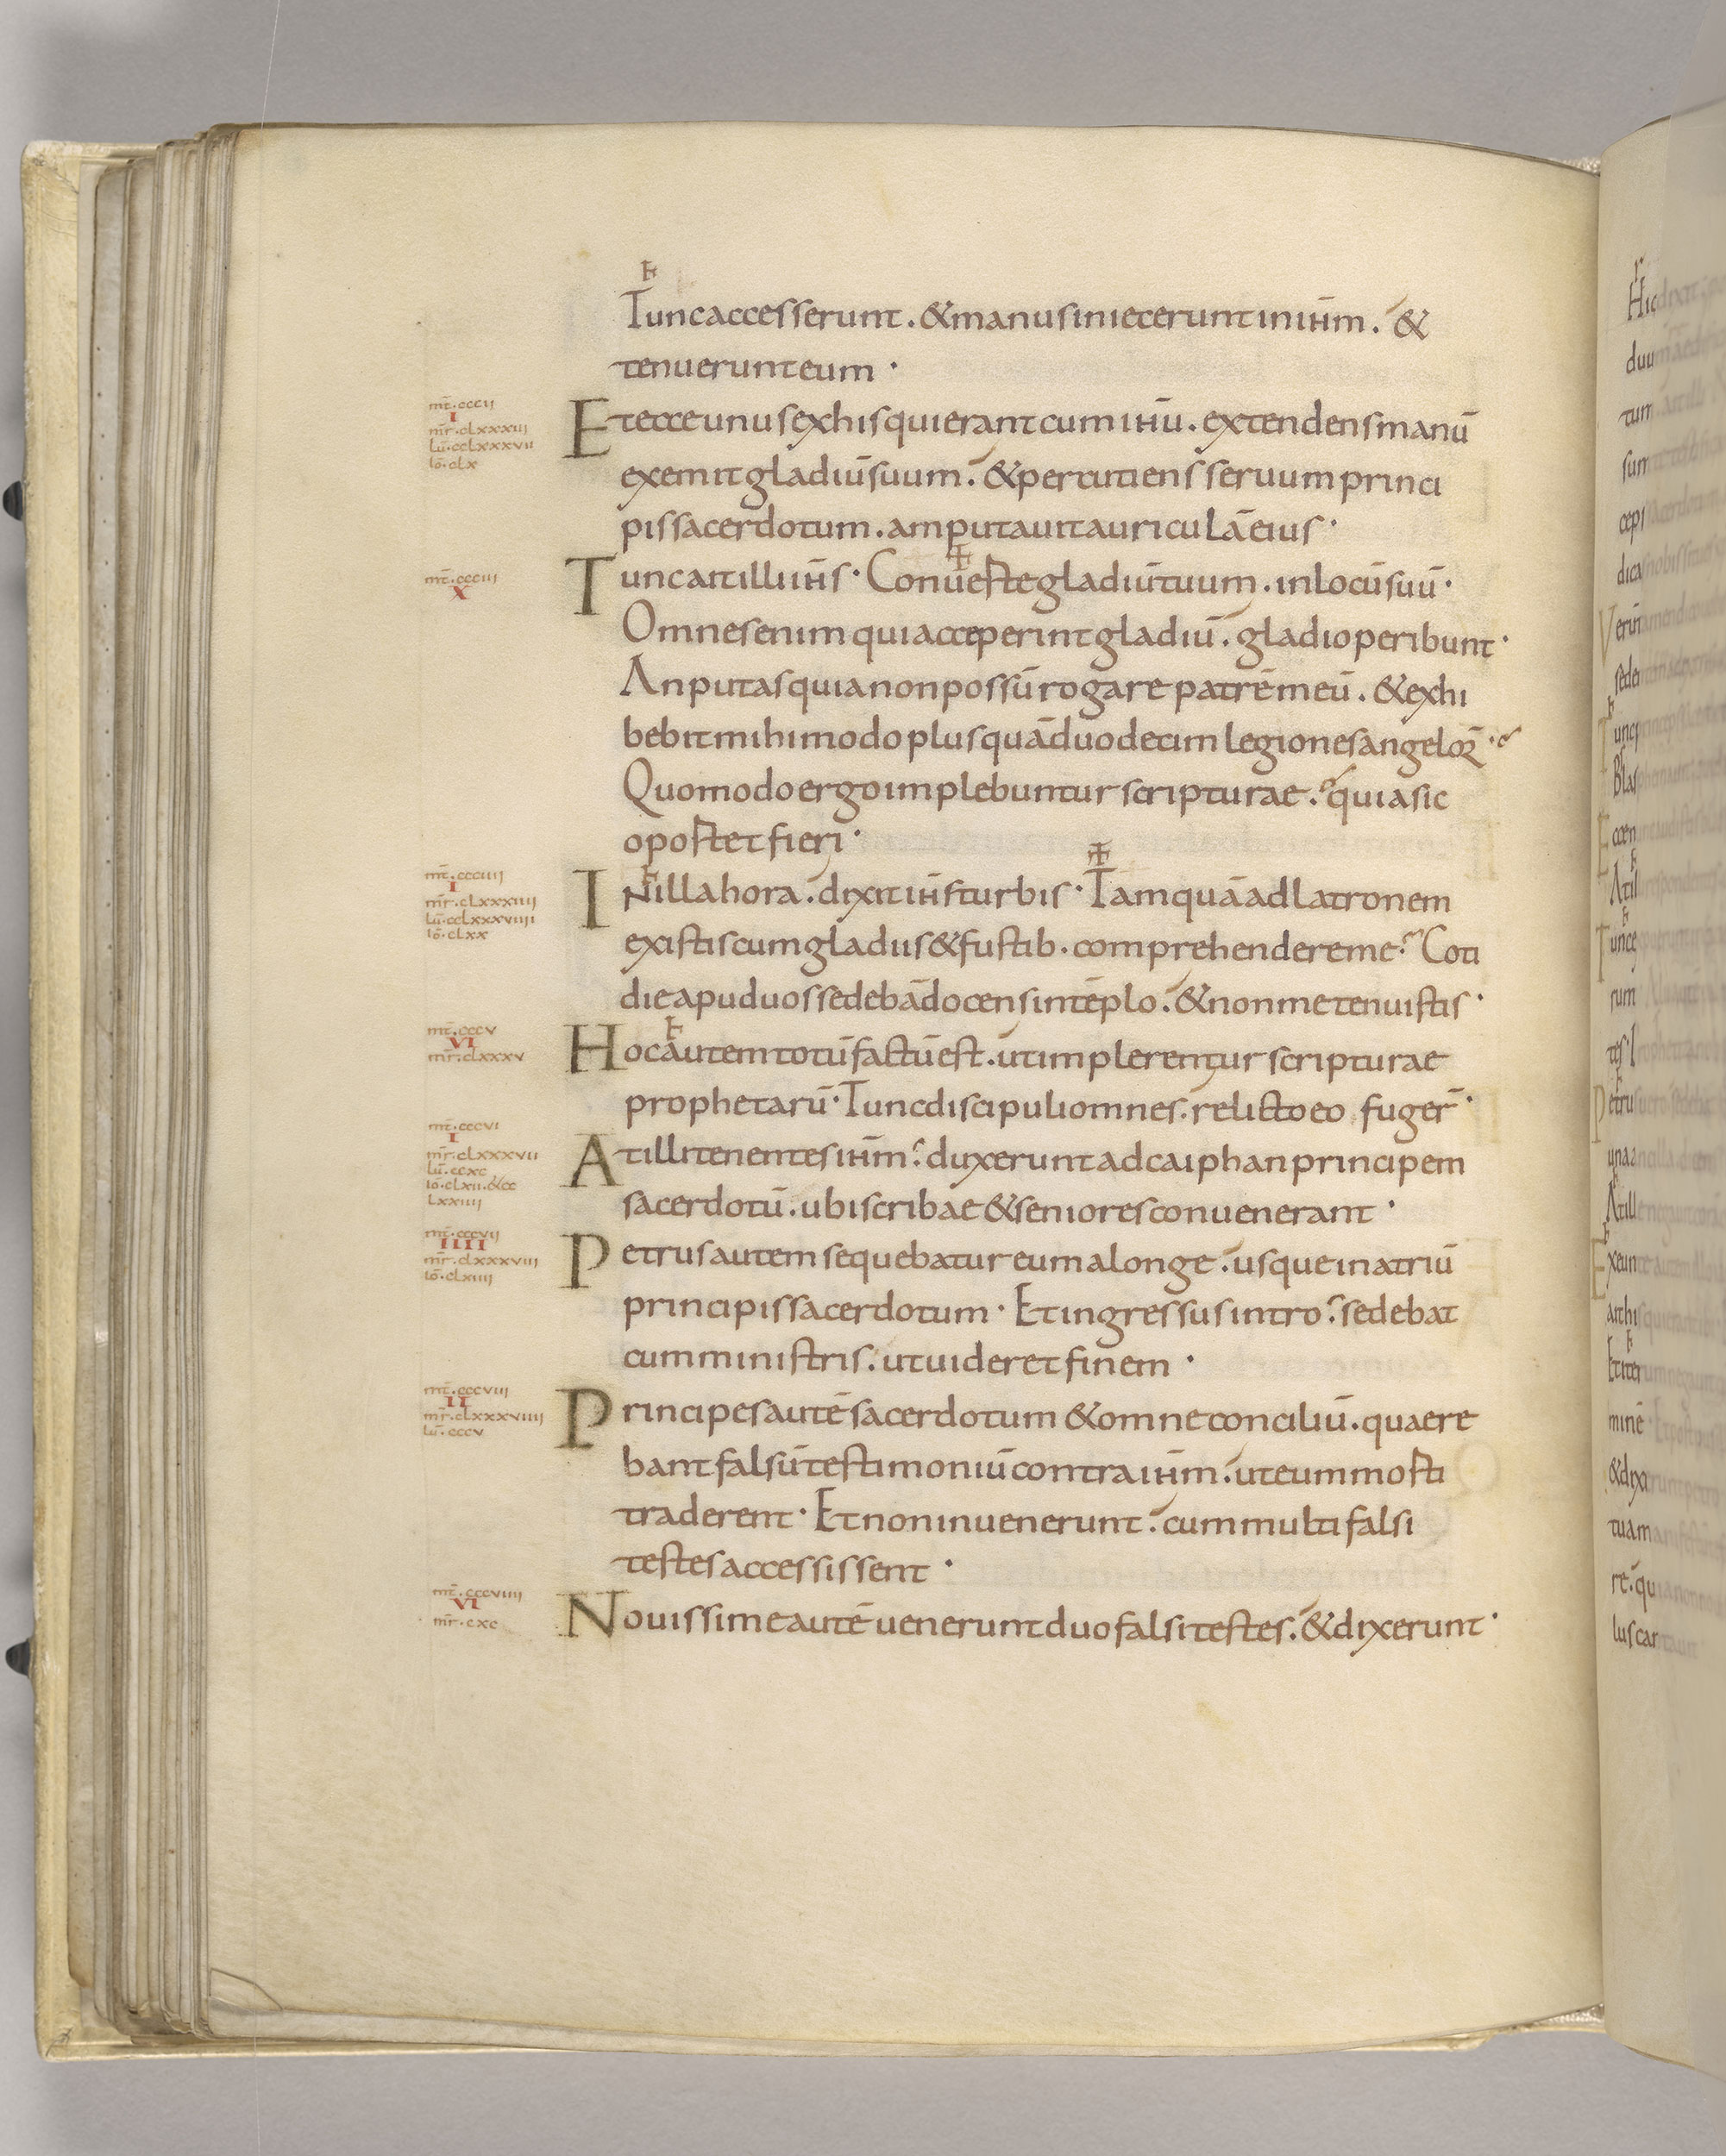 Tunc accesserunt . & manus iniecerunt in ihm̅ . &
tenuerunt eum ·
mt̅ · cccii
I
mr̅ · clxxxiii
lu̅ · cclxxxvii
io̅ · clx
Et ecce unus ex his qui erant cum ihu̅ . extendens manu̅
exemit gladiu̅ suum . & percutiens seruum princi
pis sacerdotum . amputauit auricula̅ eius ·
mt̅ · ccciii
X
Tunc ait illi ih̅s · Conuerte gladiu̅ tuum . in locu̅ suu̅ ·
Omnes enim qui acceperint gladiu̅ . gladio peribunt ·
An putas quia non possu̅ rogare patre̅ meu̅ . & exhi
bebit mihi modo plusqua̅ duodecim legiones angeloꝝ ·
Quomodo ergo implebuntur scripturae . quia sic
oportet fieri ·
mt̅ · ccciiii
I
mr̅ · clxxxiiii
lu̅ · cclxxxviiii
io̅ · clxx
IN illa hora . dixit ih̅s turbis · Tamqua̅ ad latronem
existis cum gladiis & fustib · comprehendere me . Coti
die apud uos sedeba̅ docens in te̅plo . & non me tenuistis ·
mt̅ · cccv
VI
mr̅ · clxxxv
Hoc autem totu̅ factu̅ est . ut implerentur scripturae
prophetaru̅ · Tunc discipuli omnes . relicto eo fuger̅ ·
mt̅ · cccvi
I
mr̅ · clxxxvii
lu̅ · ccxc
io̅ · clxii · & cc
lxxiiii
At illi tenentes ihm̅ . duxerunt ad caiphan principem
sacerdotu̅ . ubi scribae & seniores conuenerant ·
mt̅ · cccvii
IIII
mr̅ · clxxxviii
io̅ · clxiiii
Petrus autem sequebatur eum a longe . usque in atriu̅
principis sacerdotum · Et ingressus intro . sedebat
cum ministris . ut uideret finem ·
mt̅ · cccviii
II
mr̅ · clxxxviiii
lu̅ · cccv
Principes aute̅ sacerdotum & omne conciliu̅ . quaere
bant falsu̅ testimoniu̅ contra ihm̅ . ut eum morti
traderent · Et non inuenerunt . cum multi falsi
testes accessissent ·
mt̅ · cccviiii
VI
mr̅ · cxc
Nouissime aute̅ uenerunt duo falsi testes . & dixerunt ·